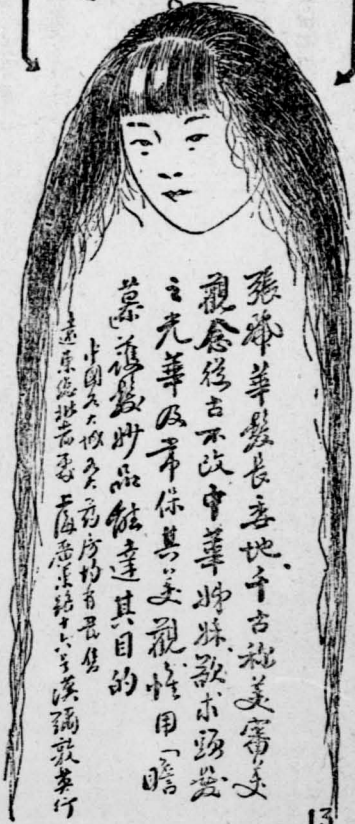 張麗華髮長委地、千古稱美審美
觀念從古不改中華姊妹、欲求頭髮
之光華及常保其美觀惟用「瞻
慕」護髮妙品能達其目的
中國各大城各大藥房均有售
遠東總批發處 上海路十六號漢彌敦英行
13